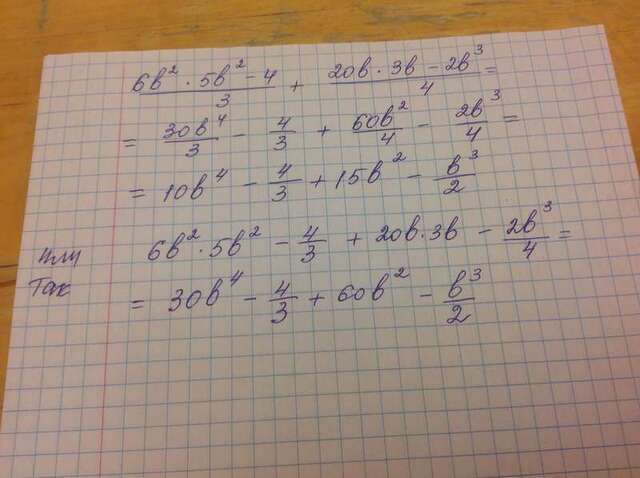 (6b² · 5b² - 4)/3 + (20b · 3b - 2b³)/4 =
= 30b⁴/3 - 4/3 + 60b²/4 - 2b³/4 =
= 10b⁴ - 4/3 + 15b² - b³/2
или 6b² · 5b² - 4/3 + 20b · 3b - 2b³/4 =
так = 30b⁴ - 4/3 + 60b² - b³/2